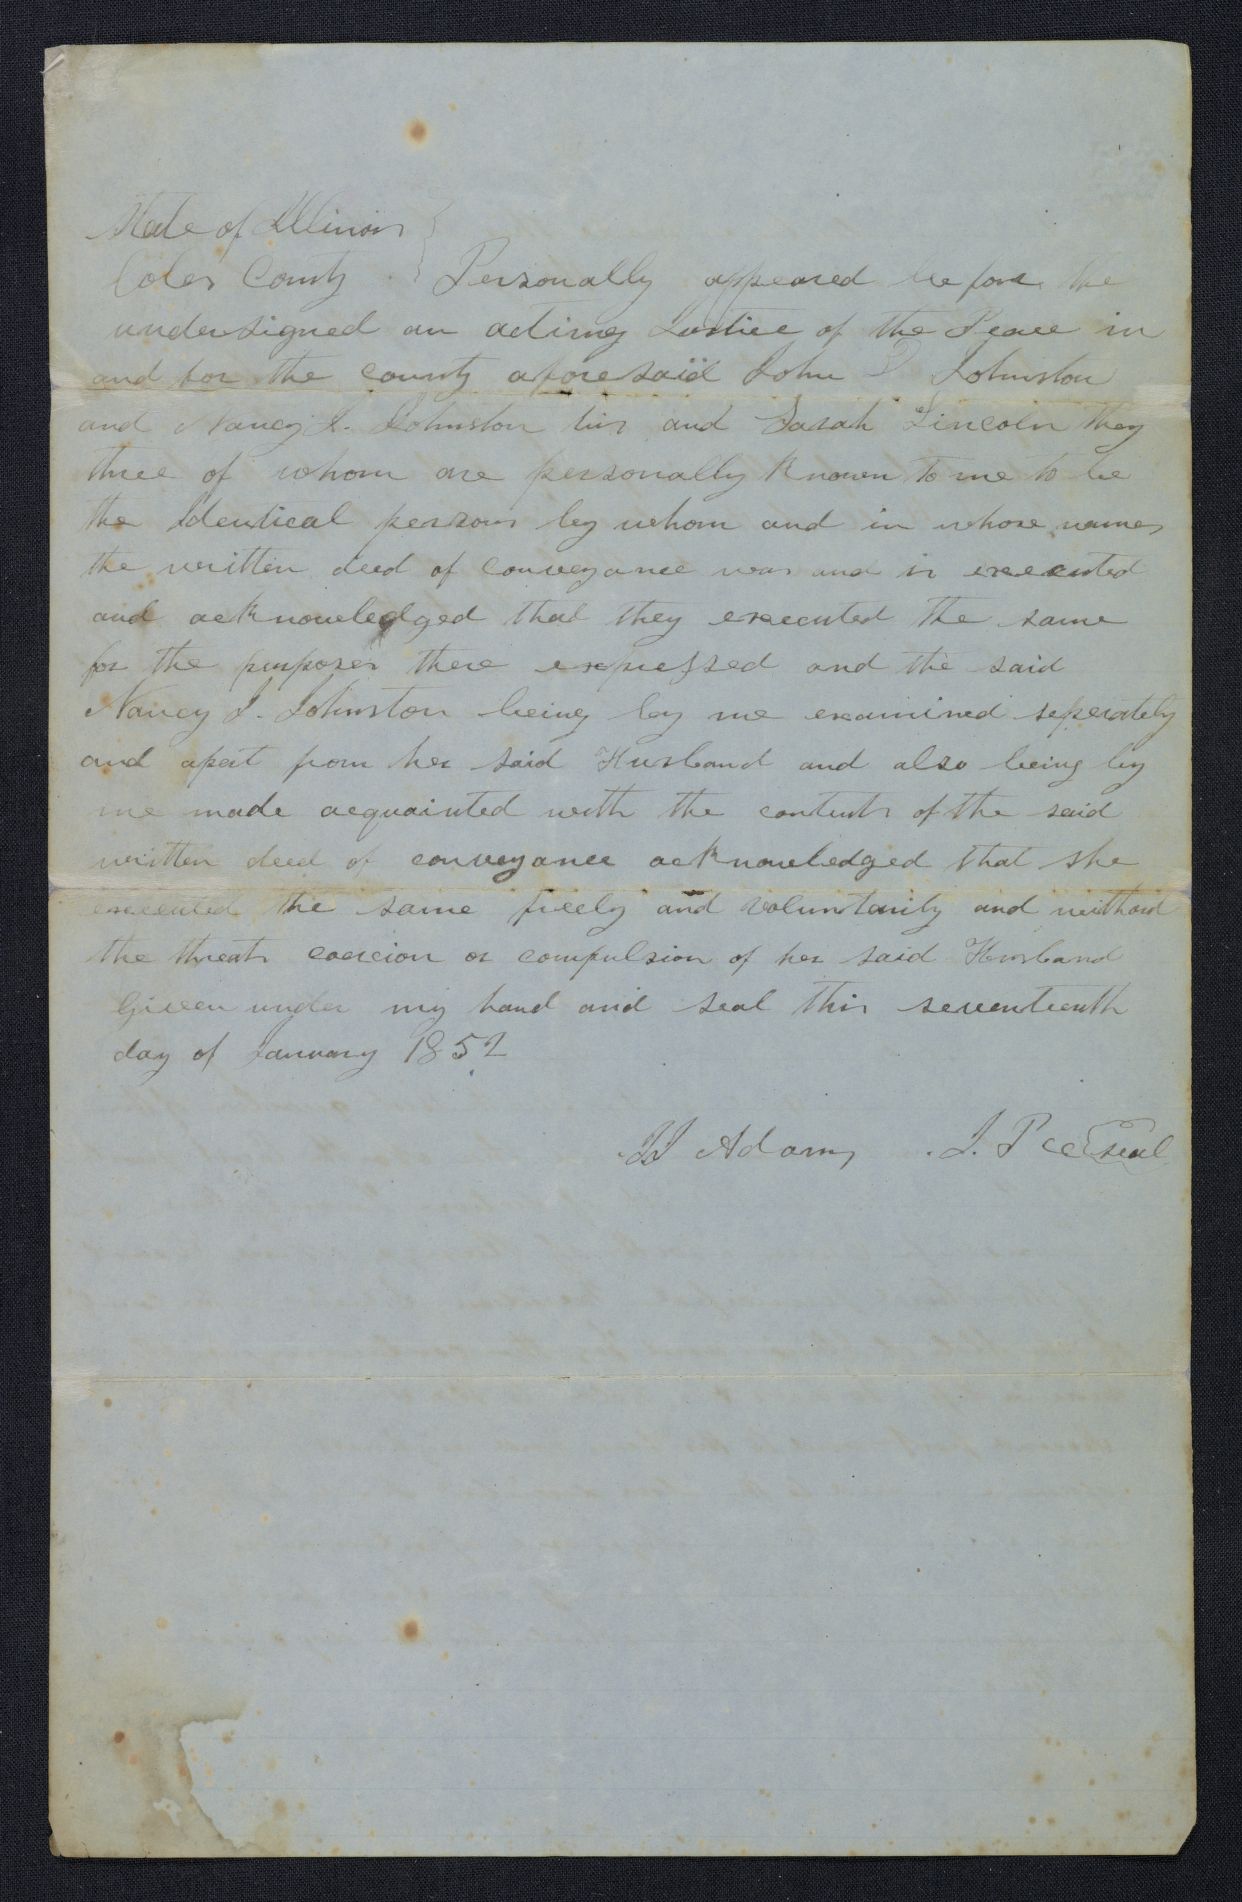 State of Illinois }
Coles County } Personally appeared before the
undersigned an acting Justice of the Peace in
and for the county aforesaid John D Johnston
and Nancy J. Johnston his and Sarah Lincoln they
three of whom are personally known to me to be
the Identical persons by whom and in whose names
the written deed of conveyance was and is executed
and acknowledged that they executed the same
for the purposes there expressed and the said
Nancy J. Johnston being by me examined seperately
and apart from her said Husband and also being by
me made acquainted with the contents of the said
written deed of conveyance acknowledged that she
executed the same freely and voluntarily and without
the threats coercion or compulsion of her said Husband
Given under my hand and seal this seventeenth
day of January 1852
Adams J. P seal